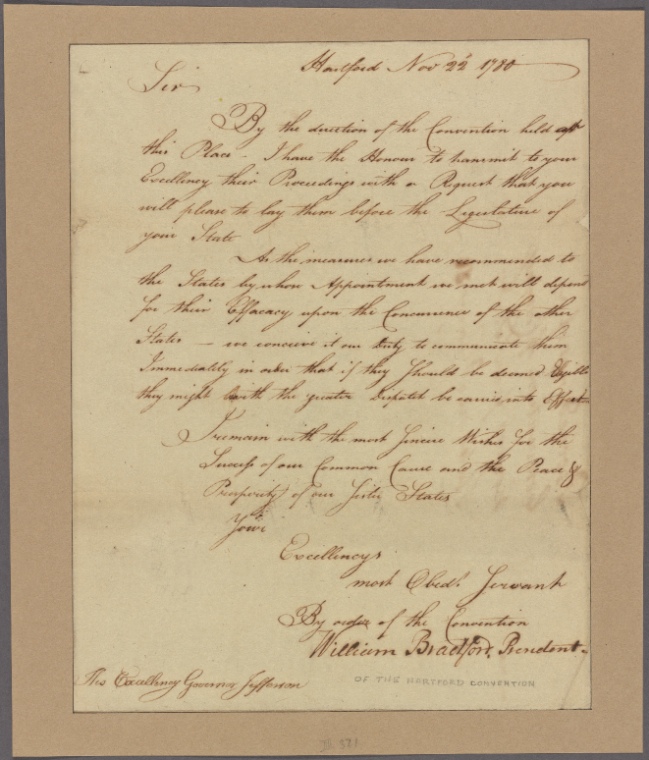 Hartford Nov 22d 1780
Sir
By the direction of the Convention held at
this Place - I have the Honour to transmit to your
Excellency their Proceedings with a Request that you
will please to lay them before the Legislature of
your State
As the measures we have recommended to
the States by whose Appointment we met will depend
for their Effacacy upon the Concurrence of the other
States — we conceive it our Duty to communicate them
Immediately in order that if they Should be deemed Eligible
they might with the greater Dispatch be carried into Effect
I remain with the most Sincere Wishes for the
Success of our Common Cause and the Peace &
Prosperity of our Sister States
Your
Excellencys
most Obedt Servant
By order of the Convention
William Bradford, President
His Excellency Governor Jefferson
OF THE HARTFORD CONVENTION